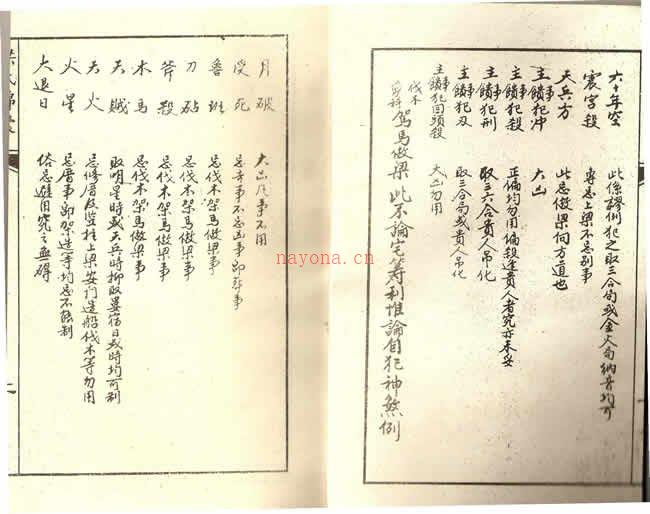 六十年空 此條謬例犯之取三合局或金火局納音均可
震宮殺 專忌上梁不忌别事
天兵方 此忌做梁向方道也
主事鑐犯冲 大凶
主事鑐犯殺 正偏均勿用偏殺逢貴人者究亦未妥
主事鑐犯刑 取三六合貴人吊化
主事鑐犯刃 取三合局或貴人吊化
主事鑐犯回頭殺 大凶勿用
伐木 駕馬做梁 此不論宅筭利惟論自犯神煞例
月破 大凶凡事不用
受死 忌吉事不忌凶事即葬事
魯班 忌伐木架馬做梁事
刀砧 忌伐木架馬做梁事
斧殺 忌伐木架馬做梁事
木馬 忌伐木架馬做梁事
天賊 取明星時或天兵時抑取婁宿日或時均可制
天火 忌修厝及豎柱上梁安門造船伐木等勿用
火星 忌厝事即架造等均忌不能制
大退日 俗忌避用究之無碍
nayona.cn